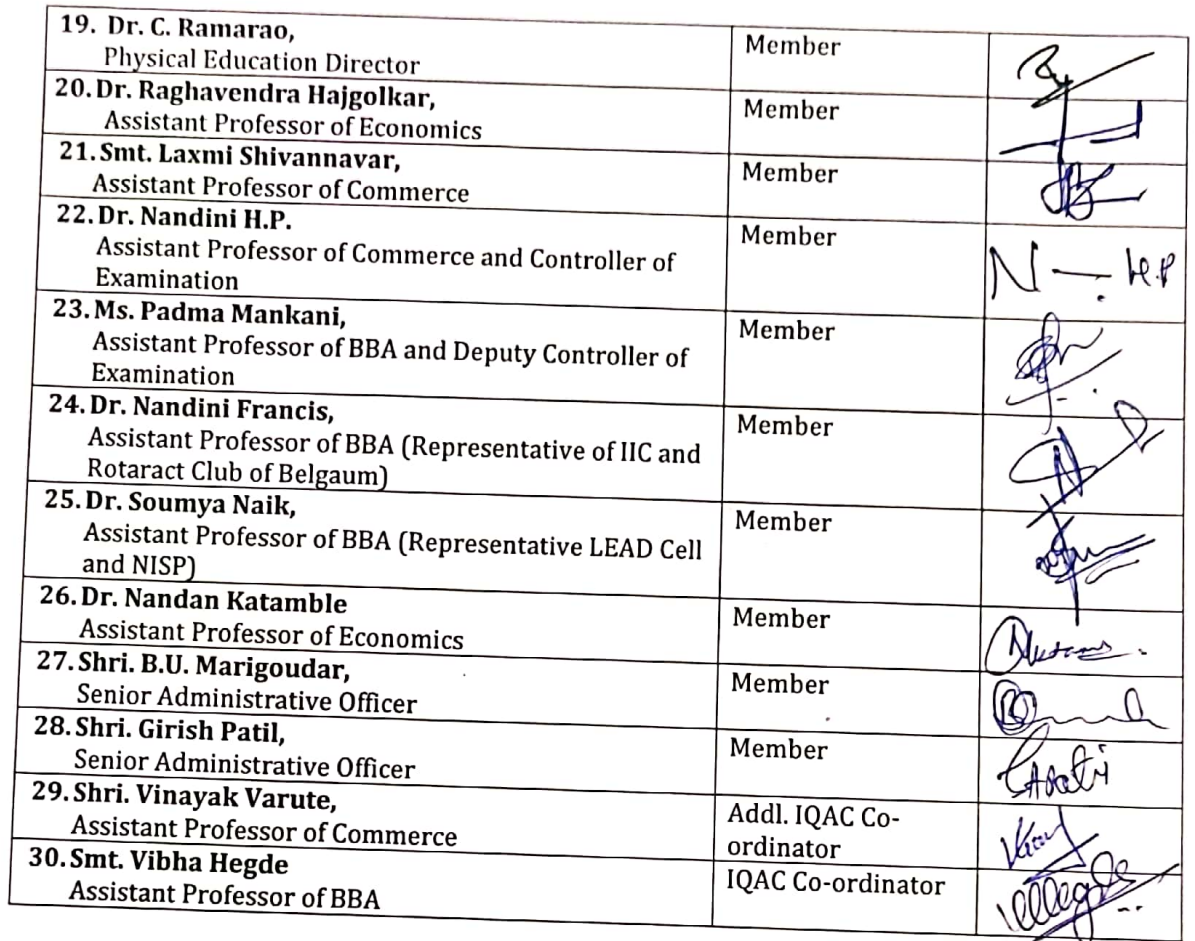 19. Dr. C. Ramarao,
Physical Education Director
Member
20. Dr. Raghavendra Hajgolkar,
Assistant Professor of Economics
Member
21. Smt. Laxmi Shivannavar,
Assistant Professor of Commerce
Member
22. Dr. Nandini H.P.
Assistant Professor of Commerce and Controller of
Examination
Member
N - H.P
23. Ms. Padma Mankani,
Assistant Professor of BBA and Deputy Controller of
Examination
Member
24. Dr. Nandini Francis,
Assistant Professor of BBA (Representative of IIC and
Rotaract Club of Belgaum)
Member
25. Dr. Soumya Naik,
Assistant Professor of BBA (Representative LEAD Cell
and NISP)
Member
26. Dr. Nandan Katamble
Assistant Professor of Economics
Member
27. Shri. B.U. Marigoudar,
Senior Administrative Officer
Member
28. Shri. Girish Patil,
Senior Administrative Officer
Member
29. Shri. Vinayak Varute,
Assistant Professor of Commerce
Addl. IQAC Co-
ordinator
30. Smt. Vibha Hegde
Assistant Professor of BBA
IQAC Co-ordinator